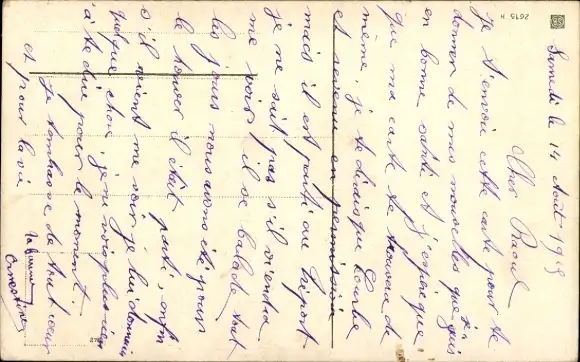 Samedi le 14 Août 1915
Cher Raoul
je t'envoie cette carte pour te
donner de mes nouvelles que je suis
en bonne santé et j'espère
que ma carte te trouvera de
même, je te dirais que
est revenu en permission
mais il est parti au Dépôt
je ne sait pas s'il viendra
me voir, il se balade tout
les jours nous avons été pour
le trouver il était parti, enfin
s'il vient me voir je lui donnerai
quelque chose, je ne vois plus rien
à te dire pour le moment.
Je t'embrasse de tout cœur
et pour la vie
Ernestine
2615